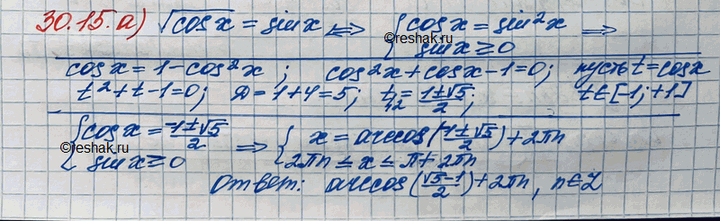 30.15.а) √cosx = sinx ⟺ { cosx = sin²x
sinx ≥ 0 ⟹
©reshak.ru
cosx = 1 - cos²x ; cos²x + cosx - 1 = 0; пусть t = cosx
t² + t - 1 = 0; Д = 1 + 4 = 5; t₁,₂ = (1±√5)/2; t ∈ [-1; +1]
{ cosx = (-1±√5)/2
sinx ≥ 0 ⟹ { x = arccos((-1±√5)/2) + 2πn
2πn ≤ x ≤ π + 2πn
©reshak.ru
Ответ: arccos((√5-1)/2) + 2πn, n∈Z
©reshak.ru